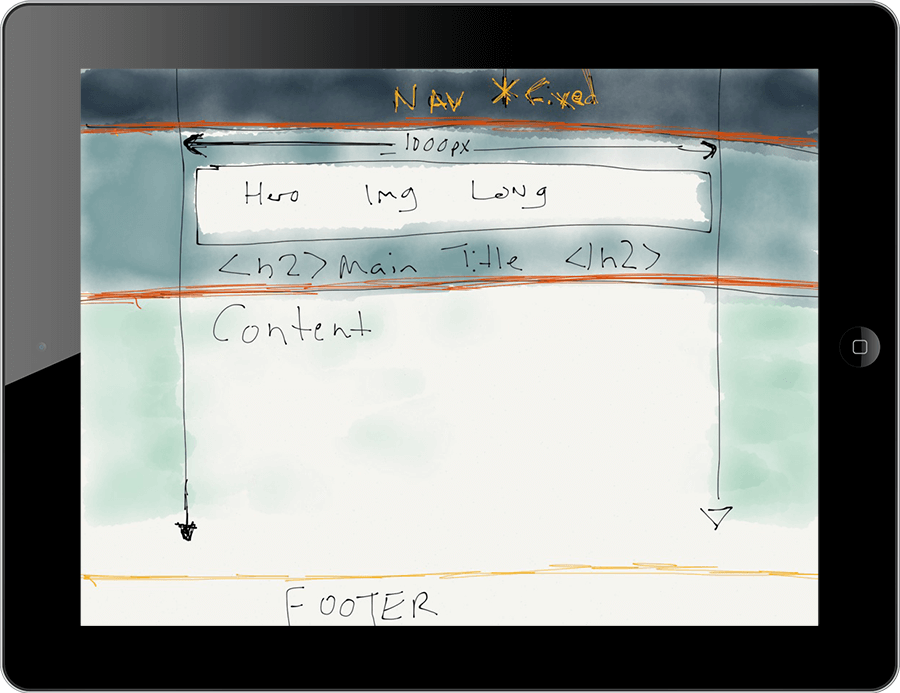 NAV *Fixed
1000px
Hero Img Long
<h2> Main Title </h2>
Content
FOOTER